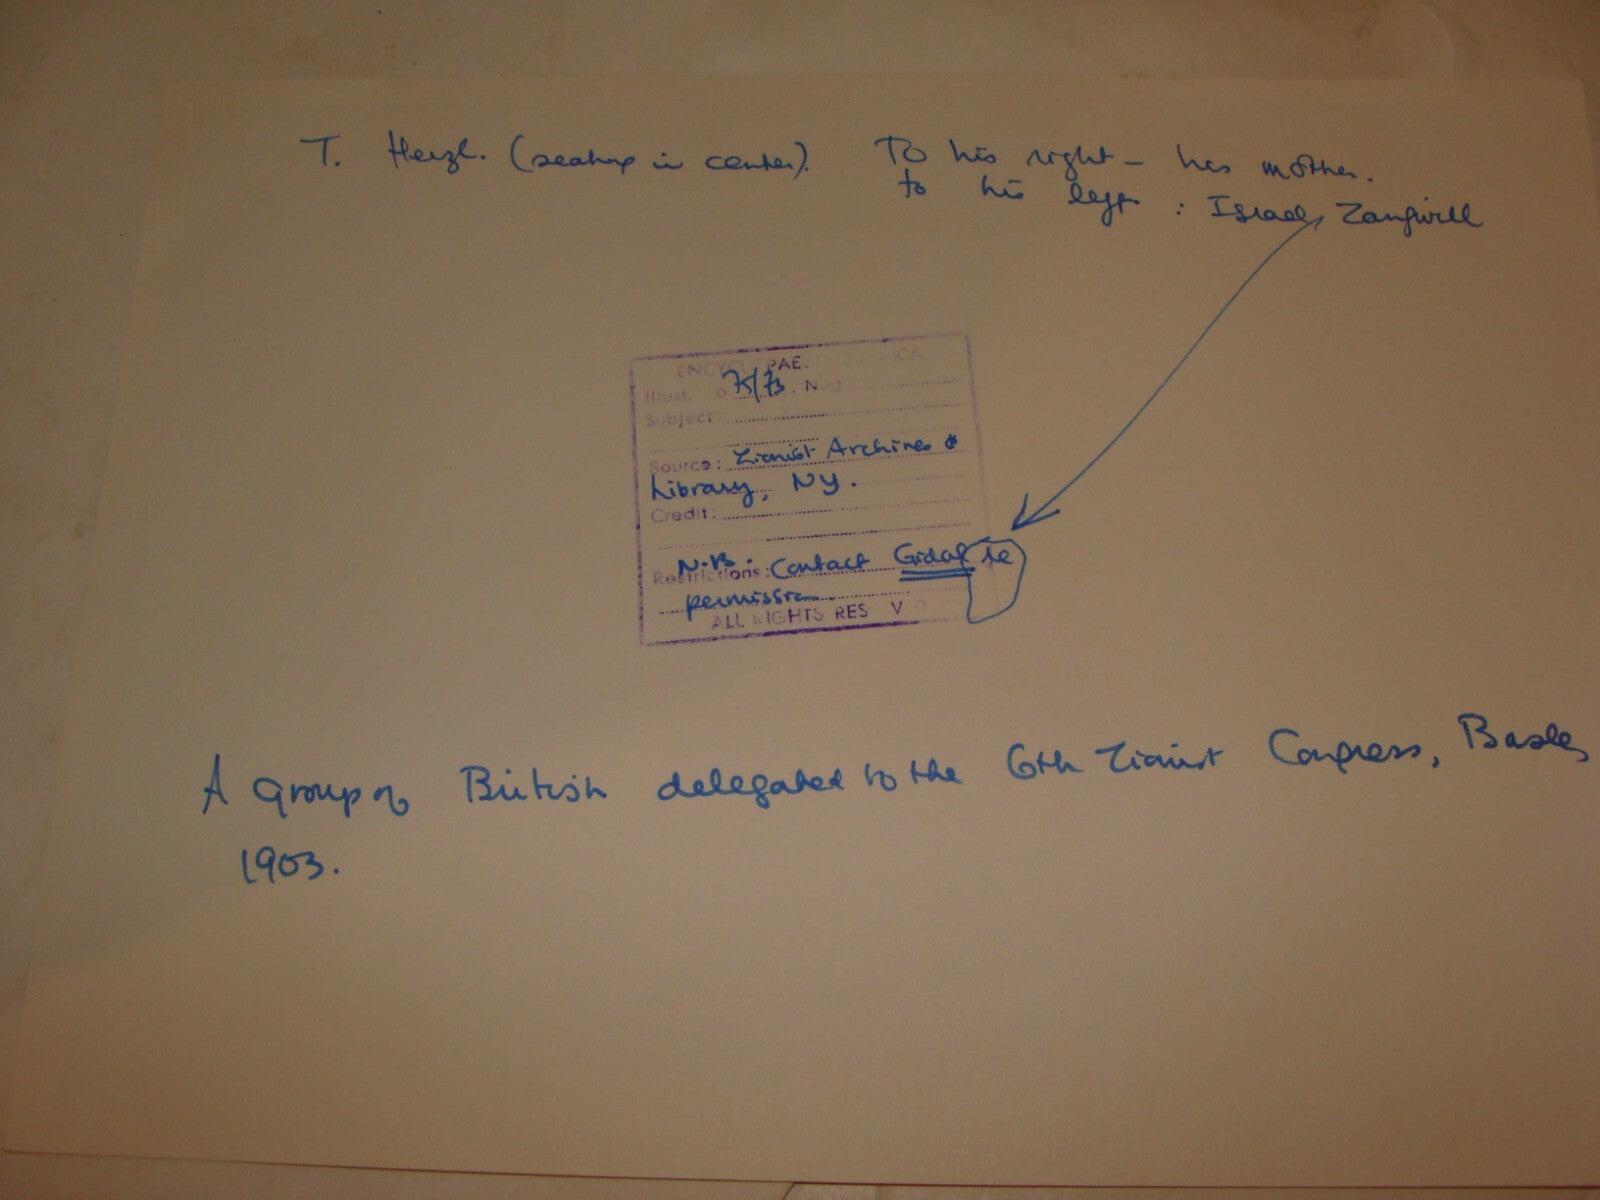 T. Herzl. (seating in center). To his right – his mother.
to his left : Israel Zangwill
ENCYCLOPAEDIA JUDAICA
Illust. 75/73. N
Subject
Source: Zionist Archives &
Library, NY.
Credit:
N.B.
Restrictions: Contact Gidal re
permission
ALL RIGHTS RESERVED
A group of British delegates to the 6th Zionist Congress, Basle,
1903.